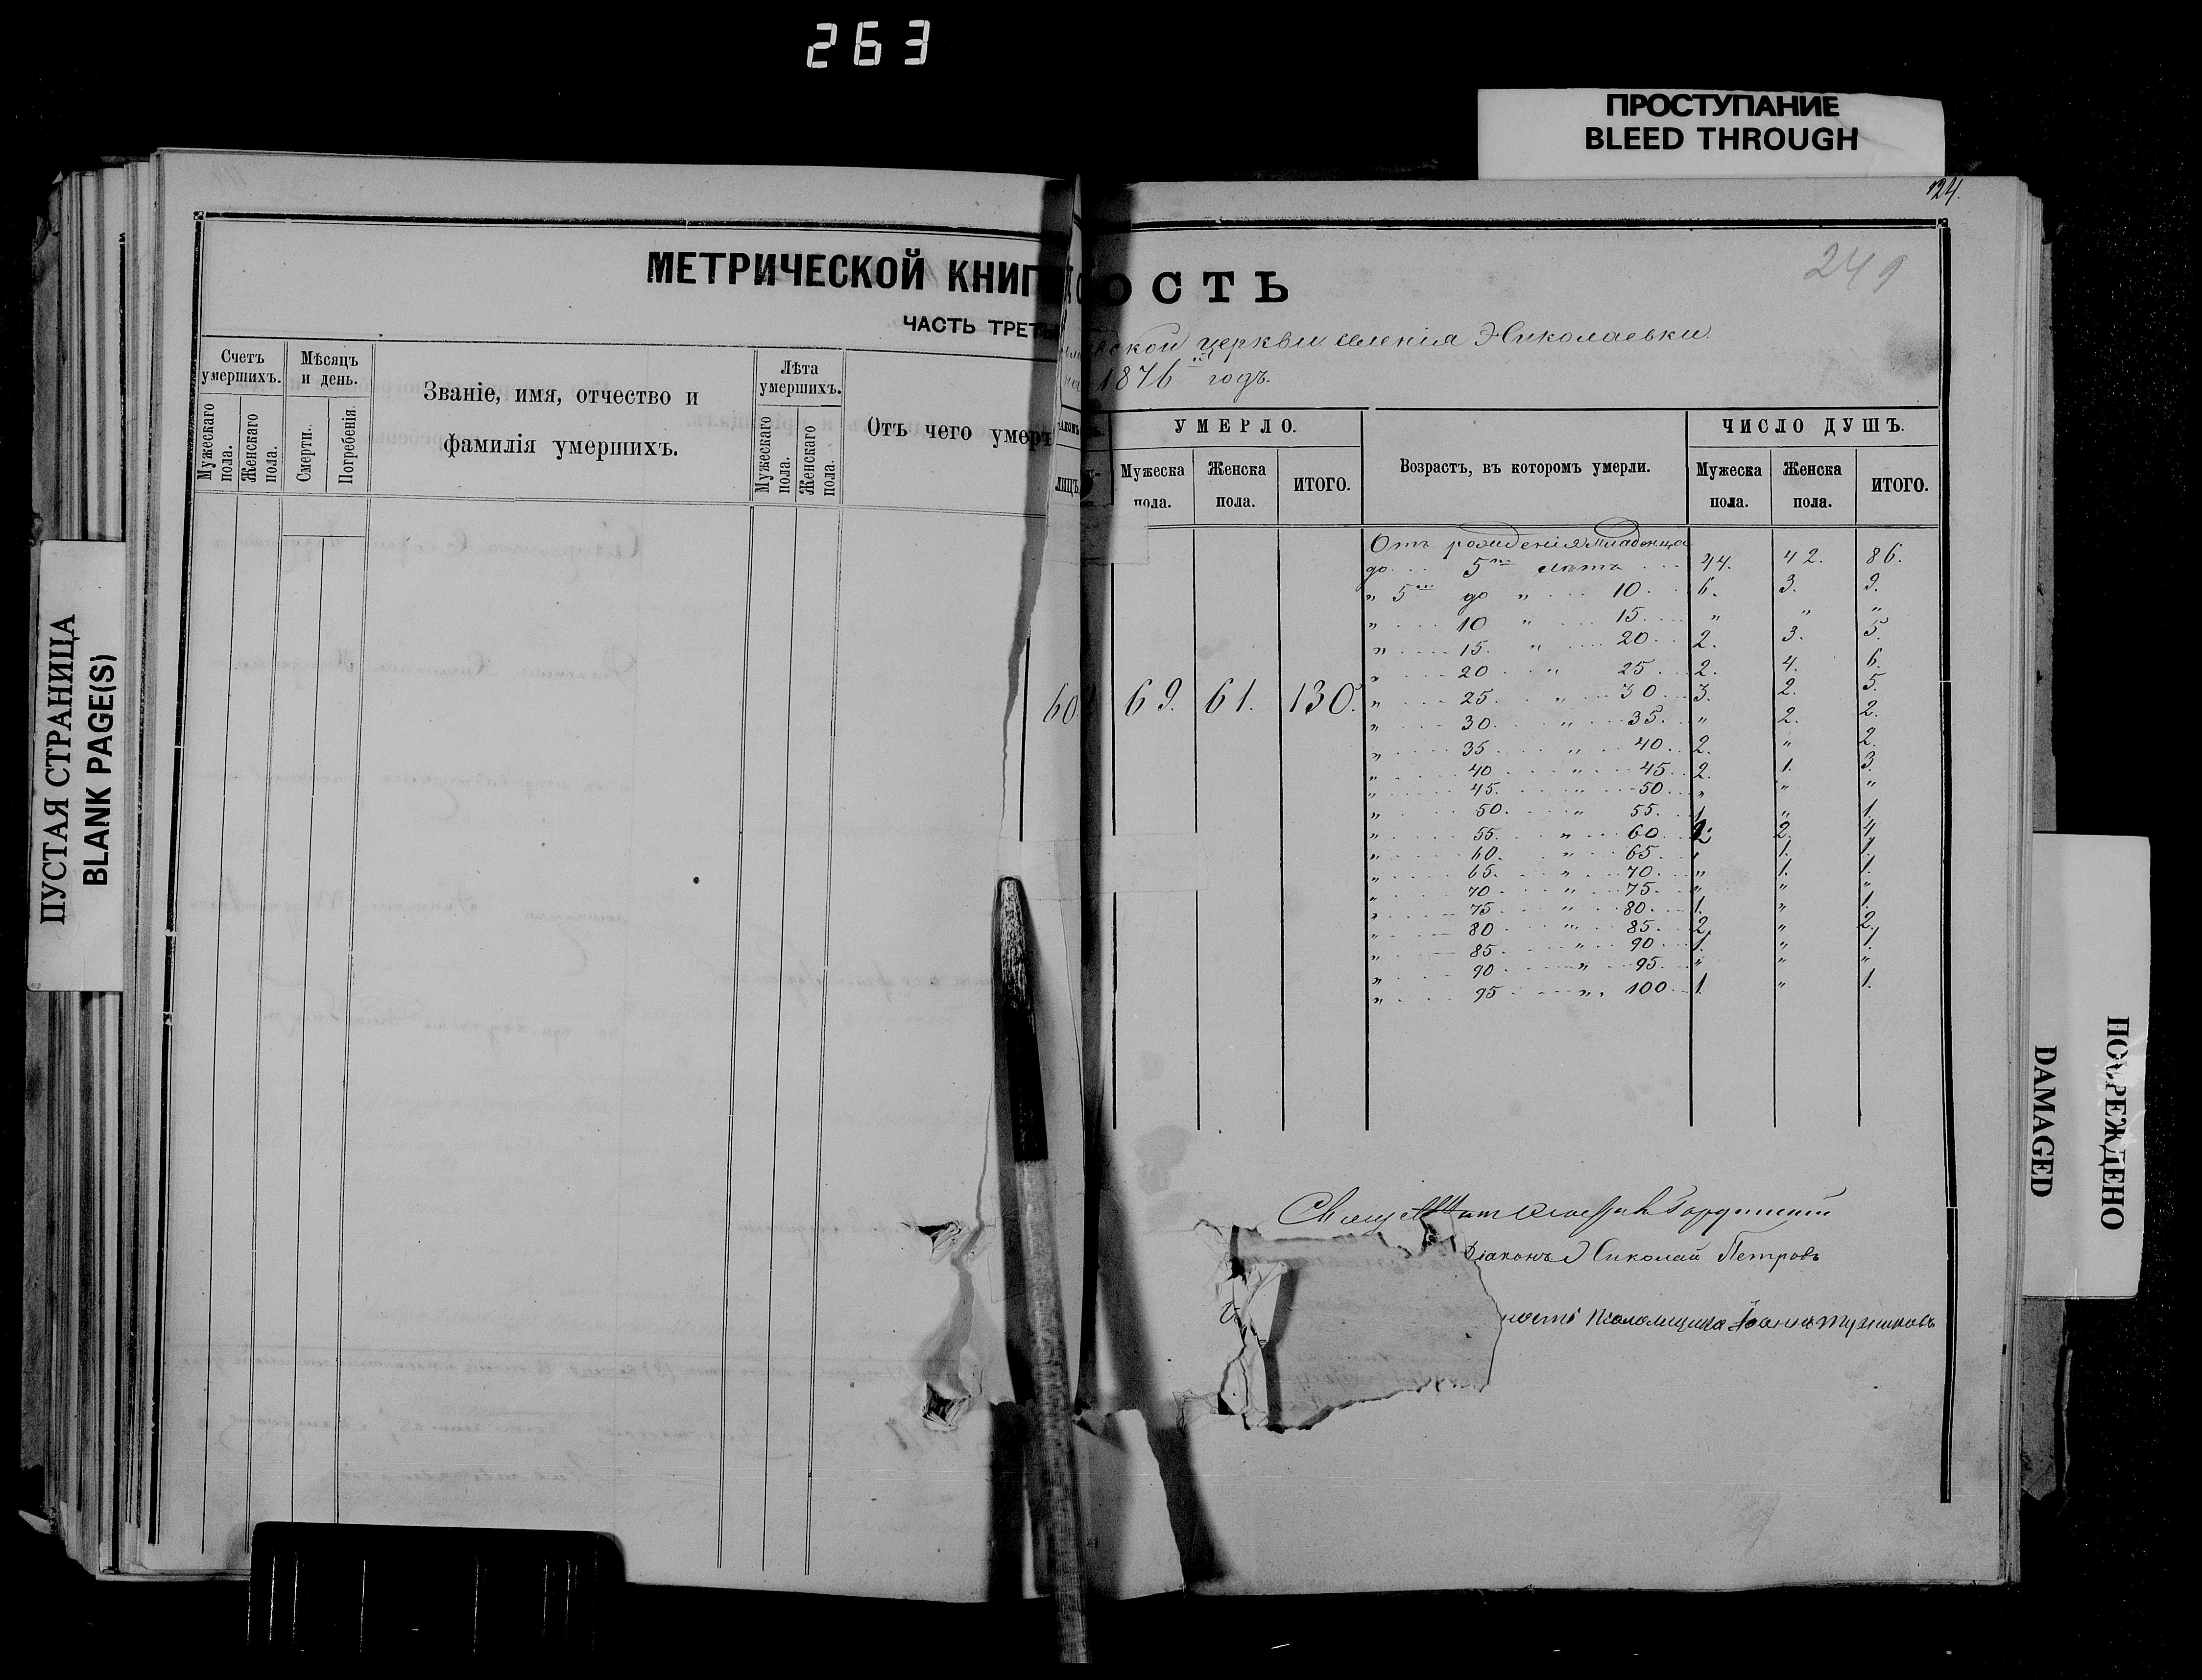 263
ПРОСТУПАНИЕ
BLEED THROUGH
ПУСТАЯ СТРАНИЦА
BLANK PAGE(S)
МЕТРИЧЕСКОЙ КНИГ
ЧАСТЬ ТРЕТЬ
Счетъ умершихъ.
Мужескаго пола.
Женскаго пола.
Мѣсяцъ и день.
Смерти.
Погребенія.
Званіе, имя, отчество и
фамилія умершихъ.
Лѣта умершихъ.
Мужескаго пола.
Женскаго пола.
Отъ чего умер
124.
249
ОСТЬ
ской церкви селенія Николаевки.
1876 годъ.
лицъ.
УМЕРЛО.
Мужеска пола.
Женска пола.
ИТОГО.
Возрастъ, въ которомъ умерли.
ЧИСЛО ДУШЪ.
Мужеска пола.
Женска пола.
ИТОГО.
60
69. 61. 130.
Отъ рожденія младенца
до 5ти лѣтъ 44. 42. 86.
„ 5ти до „ 10. 6. 3. 9.
„ 10 „ 15. „ „ „
„ 15. „ 20. 2. 3. 5.
„ 20 „ 25 2. 4. 6.
„ 25. „ 30. 3. 2. 5.
„ 30. „ 35. „ 2. 2.
„ 35 „ 40. 2. „ 2.
„ 40 „ 45. 2. 1. 3.
„ 45. „ 50. „ „ „
„ 50. „ 55. 1. „ 1.
„ 55. „ 60. 2. 2. 4.
„ 60. „ 65. „ 1. 1.
„ 65. „ 70. „ 1. 1.
„ 70 „ 75. „ „ „
„ 75 „ 80. 1. „ 1.
„ 80 „ 85. 2. „ 2.
„ 85. „ 90. 1. „ 1.
„ 90. „ 95. „ „ „
„ 95 „ 100. 1. „ 1.
Діаконъ Николай Петровъ
Псаломщика Іоаннъ
ПОВРЕЖДЕНО
DAMAGED